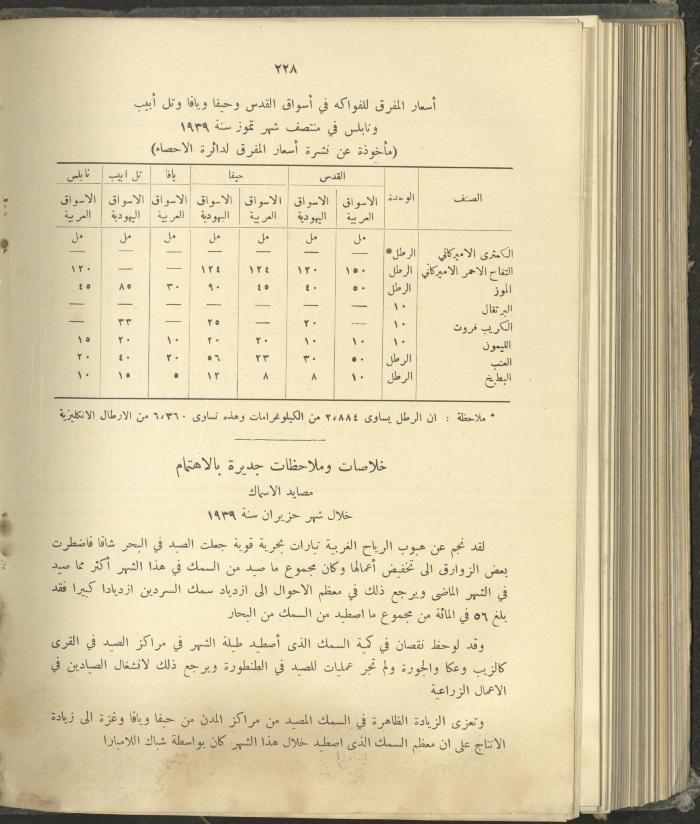 ٢٢٨
أسعار المفرق للفواكه في أسواق القدس وحيفا ويافا وتل أبيب
ونابلس في منتصف شهر تموز سنة ١٩٣٩
(مأخوذة عن نشرة أسعار المفرق لدائرة الاحصاء)
الصنف الوحدة القدس حيفا يافا تل ابيب نابلس
الاسواق العربية الاسواق اليهودية الاسواق العربية الاسواق اليهودية الاسواق العربية الاسواق اليهودية الاسواق العربية
مل مل مل مل مل مل مل
الكمثرى الاميركاني الرطل* — — — — — — —
التفاح الاحمر الاميركاني الرطل ١٥٠ ١٢٠ ١٢٤ ١٢٤ — — ١٢٠
الموز الرطل ٥٠ ٤٠ ٤٥ ٩٠ ٣٠ ٨٥ ٤٥
البرتقال ١٠ — — — — — — —
الكريب فروت ١٠ — ٢٠ — ٢٥ — ٣٣ —
الليمون ١٠ ١٠ ١٠ ٢٠ ٢٠ ١٠ ٢٠ ١٥
العنب الرطل ٥٠ ٣٠ ٢٣ ٥٦ ٢٠ ٤٠ ٢٠
البطيخ الرطل ١٠ ٨ ٨ ١٢ ٥ ١٥ ١٠
* ملاحظة : ان الرطل يساوى ٢،٨٨٤ من الكيلوغرامات وهذه تساوى ٦،٣٦٠ من الارطال الانكليزية
خلاصات وملاحظات جديرة بالاهتمام
مصايد الاسماك
خلال شهر حزيران سنة ١٩٣٩
لقد نجم عن هبوب الرياح الغربية تيارات بحرية قوية جعلت الصيد في البحر شاقا فاضطرت
بعض الزوارق الى تخفيض أعمالها وكان مجموع ما صيد من السمك في هذا الشهر أكثر مما صيد
في الشهر الماضى ويرجع ذلك في معظم الاحوال الى ازدياد سمك السردين ازديادا كبيرا فقد
بلغ ٥٦ في المائة من مجموع ما اصطيد من السمك من البحار
وقد لوحظ نقصان في كمية السمك الذى أصطيد طيلة الشهر في مراكز الصيد في القرى
كالزيب وعكا والجورة ولم تجر عمليات للصيد في الطنطورة ويرجع ذلك لانشغال الصيادين في
الاعمال الزراعية
وتعزى الزيادة الظاهرة في السمك المصيد من مراكز المدن من حيفا ويافا وغزة الى زيادة
الانتاج على ان معظم السمك الذى اصطيد خلال هذا الشهر كان بواسطة شباك اللامبارا